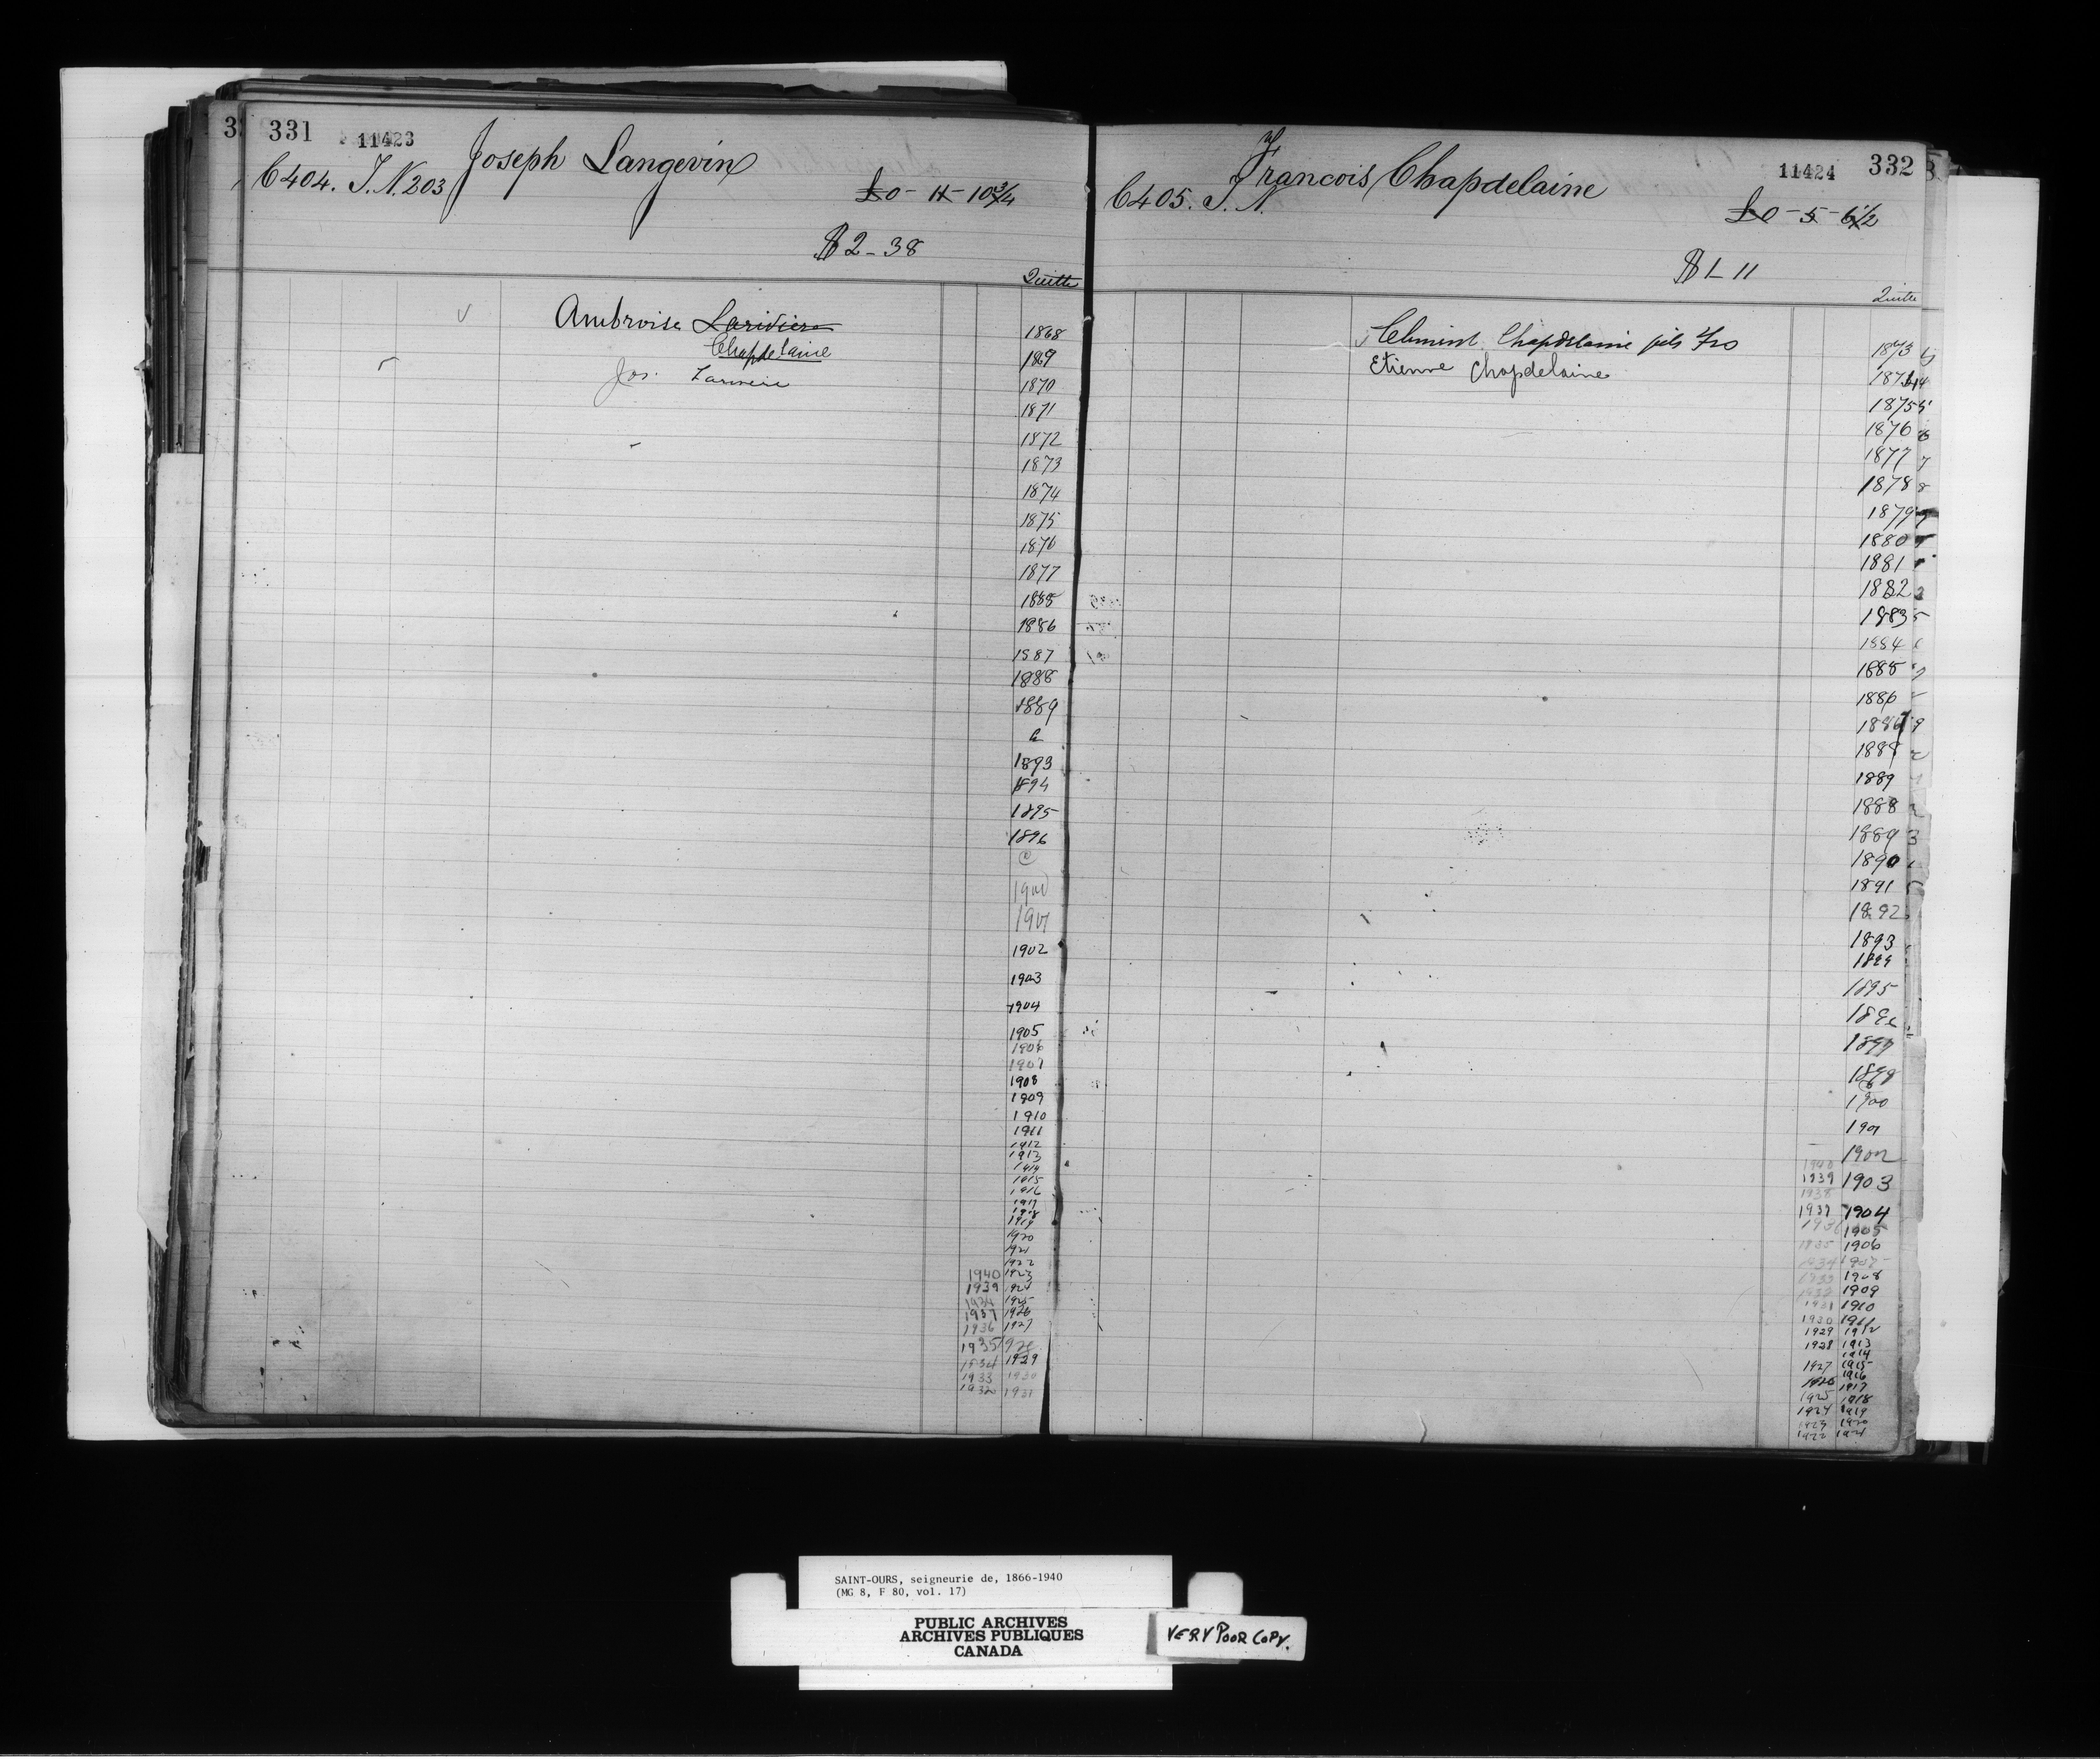 331
11423
Joseph Langevin
C 404. T. N. 203
£0 - 11 - 10 3/4
$2-38
Quitte
Ambroise Lariviere
Chapdelaine
Jos.
1868
1869
1870
1871
1872
1873
1874
1875
1876
1877
1885
1886
1887
1888
1889
1893
1894
1895
1896
1900
1901
1902
1903
1904
1905
1906
1907
1908
1909
1910
1911
1912
1913
1914
1915
1916
1917
1918
1919
1920
1921
1922
1940 1923
1939 1924
1925
1937 1926
1936 1927
1935
1934 1929
1933 1930
1932 1931
11424
332
Francois Chapdelaine
C 405. T. N.
£0 - 5 - 6 1/2
$1-11
Quitte
Clement Chapdelaine fils Frs
Etienne Chapdelaine
1873
1874
1875
1876
1877
1878
1879
1880
1881
1882
1883
1884
1885
1886
1887
1888
1889
1888
1889
1890
1891
1892
1893
1894
1895
1896
1897
1898
1900
1901
1940 1902
1939 1903
1938
1937 1904
1936 1905
1935 1906
1934 1907
1933 1908
1932 1909
1931 1910
1930 1911
1929 1912
1928 1913
1914
1927 1915
1916
1926 1917
1925 1918
1924 1919
1923 1920
1922 1921
SAINT-OURS, seigneurie de, 1866-1940
(MG 8, F 80, vol. 17)
PUBLIC ARCHIVES
ARCHIVES PUBLIQUES
CANADA
VERY POOR COPY.